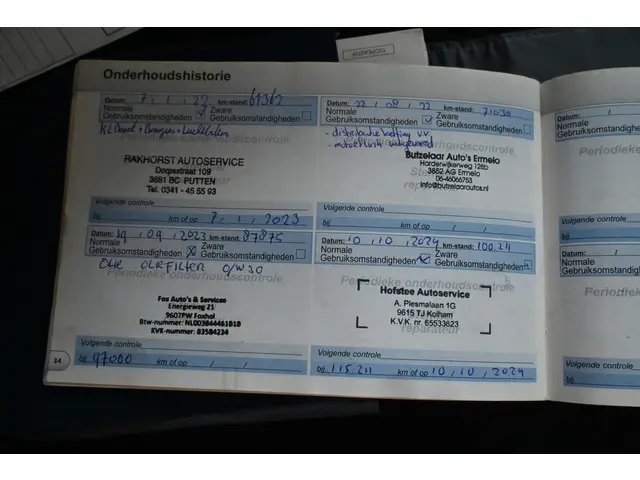 Onderhoudshistorie
Datum: 7, 1, 22 km-stand: 61362
Normale Zware
Gebruiksomstandigheden Gebruiksomstandigheden
Periodieke onderhoudscontrole
RAKHORST AUTOSERVICE
Dorpsstraat 109
3881 BC PUTTEN
Tel. 0341 - 45 55 93
Volgende controle
bij km of op 7, 1, 2023
Datum: 22, 08, 22 km-stand:
Normale Zware
Gebruiksomstandigheden Gebruiksomstandigheden
- distributie ketting vv.
Butzelaar Auto's Ermelo
Harderwijkerweg 126b
3852 AG Ermelo
06-46066753
info@butzelaarautos.nl
reparateur
Volgende controle
bij km of op / /
Datum: 19, 09, 2023 km-stand: 87875
Normale Zware
Gebruiksomstandigheden Gebruiksomstandigheden
OLIE OLIEFILTER 0/W30
Fox Auto's & Services
Energieweg 21
9607PW Foxhol
Btw-nummer: NL003844461B18
KVK-nummer: 83584234
Volgende controle
bij 97000 km of op / /
Datum: 10, 10, 2024 km-stand: 100.211
Normale Zware
Gebruiksomstandigheden Gebruiksomstandigheden
Periodieke onderhoudscontrole
Hofstee Autoservice
A. Plesmalaan 1G
9615 TJ Kolham
K.V.K. nr. 65533623
reparateur
Volgende controle
bij 115.211 km of op 10, 10, 2024
Datum: /
Normale
Gebruiksomstandigheden
Periodieke
Volgende controle
bij
Datum: /
Normale
Gebruiksomstandigheden
Periodieke
Volgende controle
bij
34